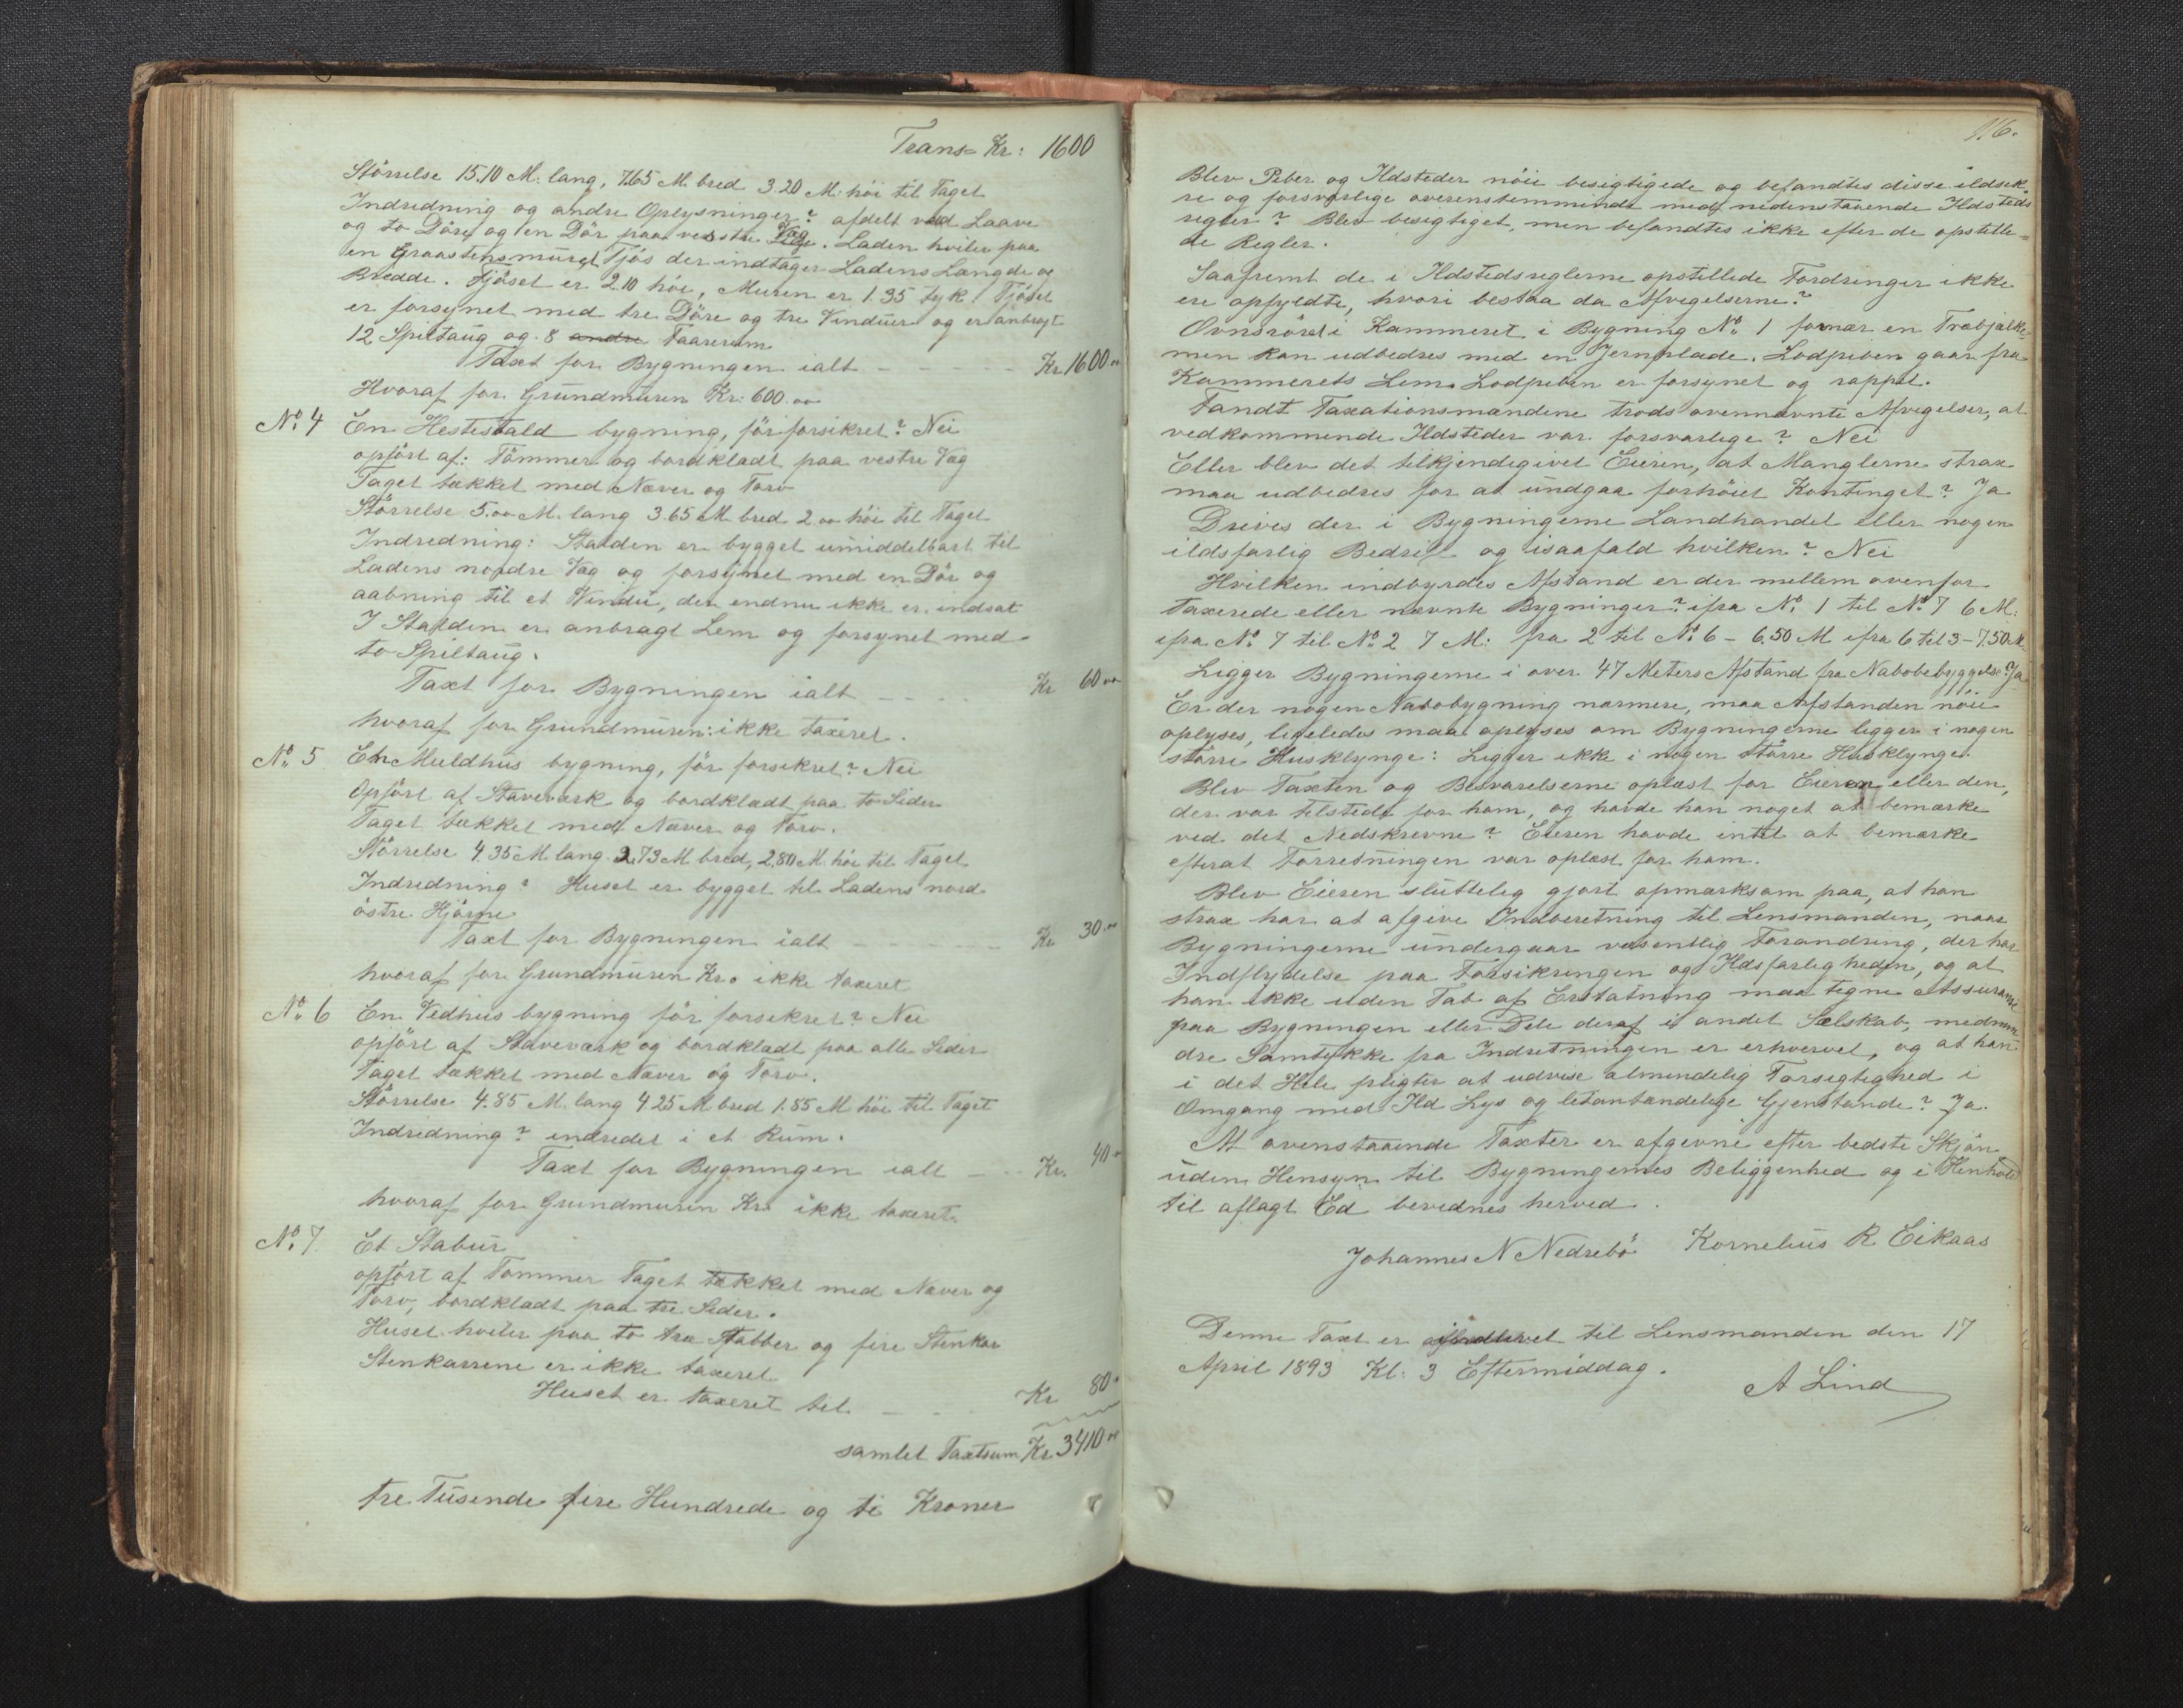 Trans= Kr: 1600
Störrelse 15.10 M. lang, 7.65 M. bred 3.20 M. höi til Taget
Indredning og andre Oplysninger? afdelt ved Laave
og to Döre og en Dör paa vestre Væg. Laden hviler paa
en Graastensmuret Fjös der indtager Ladens Længde og
Bredde. Fjöset er 2.10 höi, Muren er 1.35 tyk. Fjöset
er forsynet med tre Döre og tre Vinduer og er anbragt
12 Spiltaug og 8 andre Faarerum
Taxt for Bygningen ialt - - - - - Kr. 1600 00
Hvoraf for Grundmuren Kr: 600.00
No. 4 En Hestestald bygning, för forsikret? Nei
opfört af: Tömmer og bordklædt paa vestre Væg
Taget tækket med Næver og Torv
Störrelse 5.00 M. lang 3.65 M bred 2.00 höi til Taget
Indredning: Stalden er bygget umiddelbart til
Ladens nordre Væg og forsynet med en Dör og
aabning til et Vindu, der endnu ikke er indsat
I Stalden er anbragt Lem og forsynet med
to Spiltaug.
Taxt for Bygningen ialt - - - - Kr 60 00
hvoraf for Grundmuren: ikke taxeret.
No. 5 Et Muldhus bygning, för forsikret? Nei
Opfört af Staveværk og bordklædt paa to Sider
Taget tækket med Næver og Torv.
Störrelse 4.35 M lang 2.73 M bred, 2,80 M. höi til Taget
Indredning? Huset er bygget til Ladens nord
östre Hjörne
Taxt for Bygningen ialt - - - - - - Kr 30.00
hvoraf for Grundmuren Kr. ikke taxeret
No. 6 En Vedhus bygning för forsikret? Nei
opfört af Staveværk og bordklædt paa alle Sider
Taget tækket med Næver og Torv.
Störrelse 4.85 M. lang 4.25 M bred 1.85 M höi til Taget
Indredning? indredet i et Rum.
Taxt for Bygningen ialt - - - Kr. 40 00
hvoraf for Grundmuren Kr. ikke taxeret.
No. 7. Et Stabur
opfört af Tømmer Taget tækket med Næver og
Torv, bordklædt paa tre Sider.
Huset hviler paa to træ Stabber og fire Stenkar
Stenkarrene er ikke taxeret
Huset er taxeret til - - - Kr 80 00
samlet Taxtsum Kr. 3410 00
tre Tusende fire Hundrede og ti Kroner
116.
Blev Peber og Ildsteder nöie besigtigede og befandtes disse ildsik=
re og forsvarlige overenstemmende med nedenstaaende Ildsteds
regler? Blev besigtiget, men befandtes ikke efter de opstille=
de Regler.
Saafremt de i Ildstedsreglerne opstillede Fordringer ikke
ere opfyldte, hvori bestaa da Afvigelserne?
Ovnsröret i Kammeret i Bygning No. 1 for nær en Træbjælke
men kan udbedres med en Jernplade. Lodpiben gaar fra
Kammerets Lem. Lodpiben er forsynet og rappet.
Fandt Taxationsmændene trods ovennævnte Afvigelser, at
vedkommende Ildsteder var forsvarlige? Nei
Eller blev det tilkjendegivet Eieren, at Manglerne strax
maa udbedres for at undgaa forhöiet Kontinget? Ja
Drives der i Bygningerne Landhandel eller nogen
ildsfarlig Bedrift og isaafald hvilken? Nei
Hvilken indbyrdes Afstand er der mellem ovenfor
taxerede eller nævnte Bygninger? ifra No. 1 til No. 7 6 M:
ifra No. 7 til No. 2 7 M: fra 2 til No. 6 - 6.50 M ifra 6 til 3 - 7.50 M.
Ligger Bygningerne i over 47 Meters Afstand fra Nabobebyggelse? Ja
Er der nogen Nabobygning nærmere, maa Afstanden nöie
oplyses, ligeledes maa oplyses om Bygningerne ligger i nogen
större Husklynge: Ligger ikke i nogen större Husklynge.
Blev Taxten og Besvarelserne oplæst for Eieren eller den,
der var tilstede for ham, og havde han noget at bemærke
ved det Nedskrevne? Eieren havde intet at bemærke
efterat Forretningen var oplæst for ham.
Blev Eieren sluttelig gjort opmærksom paa, at han
strax har at afgive Indberetning til Lensmanden, naar
Bygningerne undergaar væsentlig Forandring, der har
Indflydelse paa Forsikringen og Ildsfarligheden, og at
han ikke uden Tab af Erstatning maa tegne Assurance
paa Bygningen eller Dele deraf i andet Sælskab, medmin
dre Samtykke fra Indretningen er erhvervet, og at han
i det Hele pligter at udvise almindelig Forsigtighed i
Omgang med Ild Lys og letantændelige Gjenstande? Ja.
At ovenstaaende Taxter er afgivne efter bedste Skjön
uden Hensyn til Bygningernes Beliggenhed og i Henhold
til aflagt Ed bevidnes herved.
Johannes N Nedrebö Kornelius R. Eikaas
Denne Taxt er indleveret til Lensmanden den 17
April 1893 Kl: 3 Eftermiddag.
A Lind